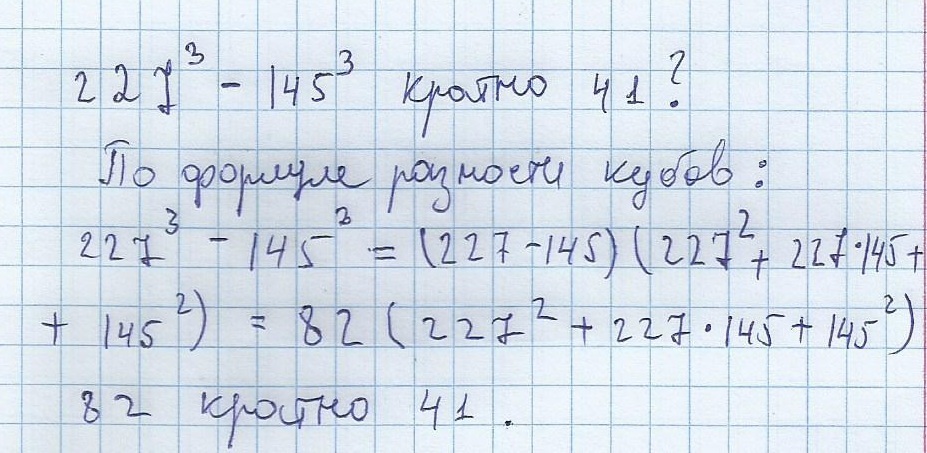 227³ - 145³ кратно 41?
По формуле разности кубов:
227³ - 145³ = (227-145)(227² + 227·145 +
+ 145²) = 82(227² + 227·145 + 145²)
82 кратно 41.